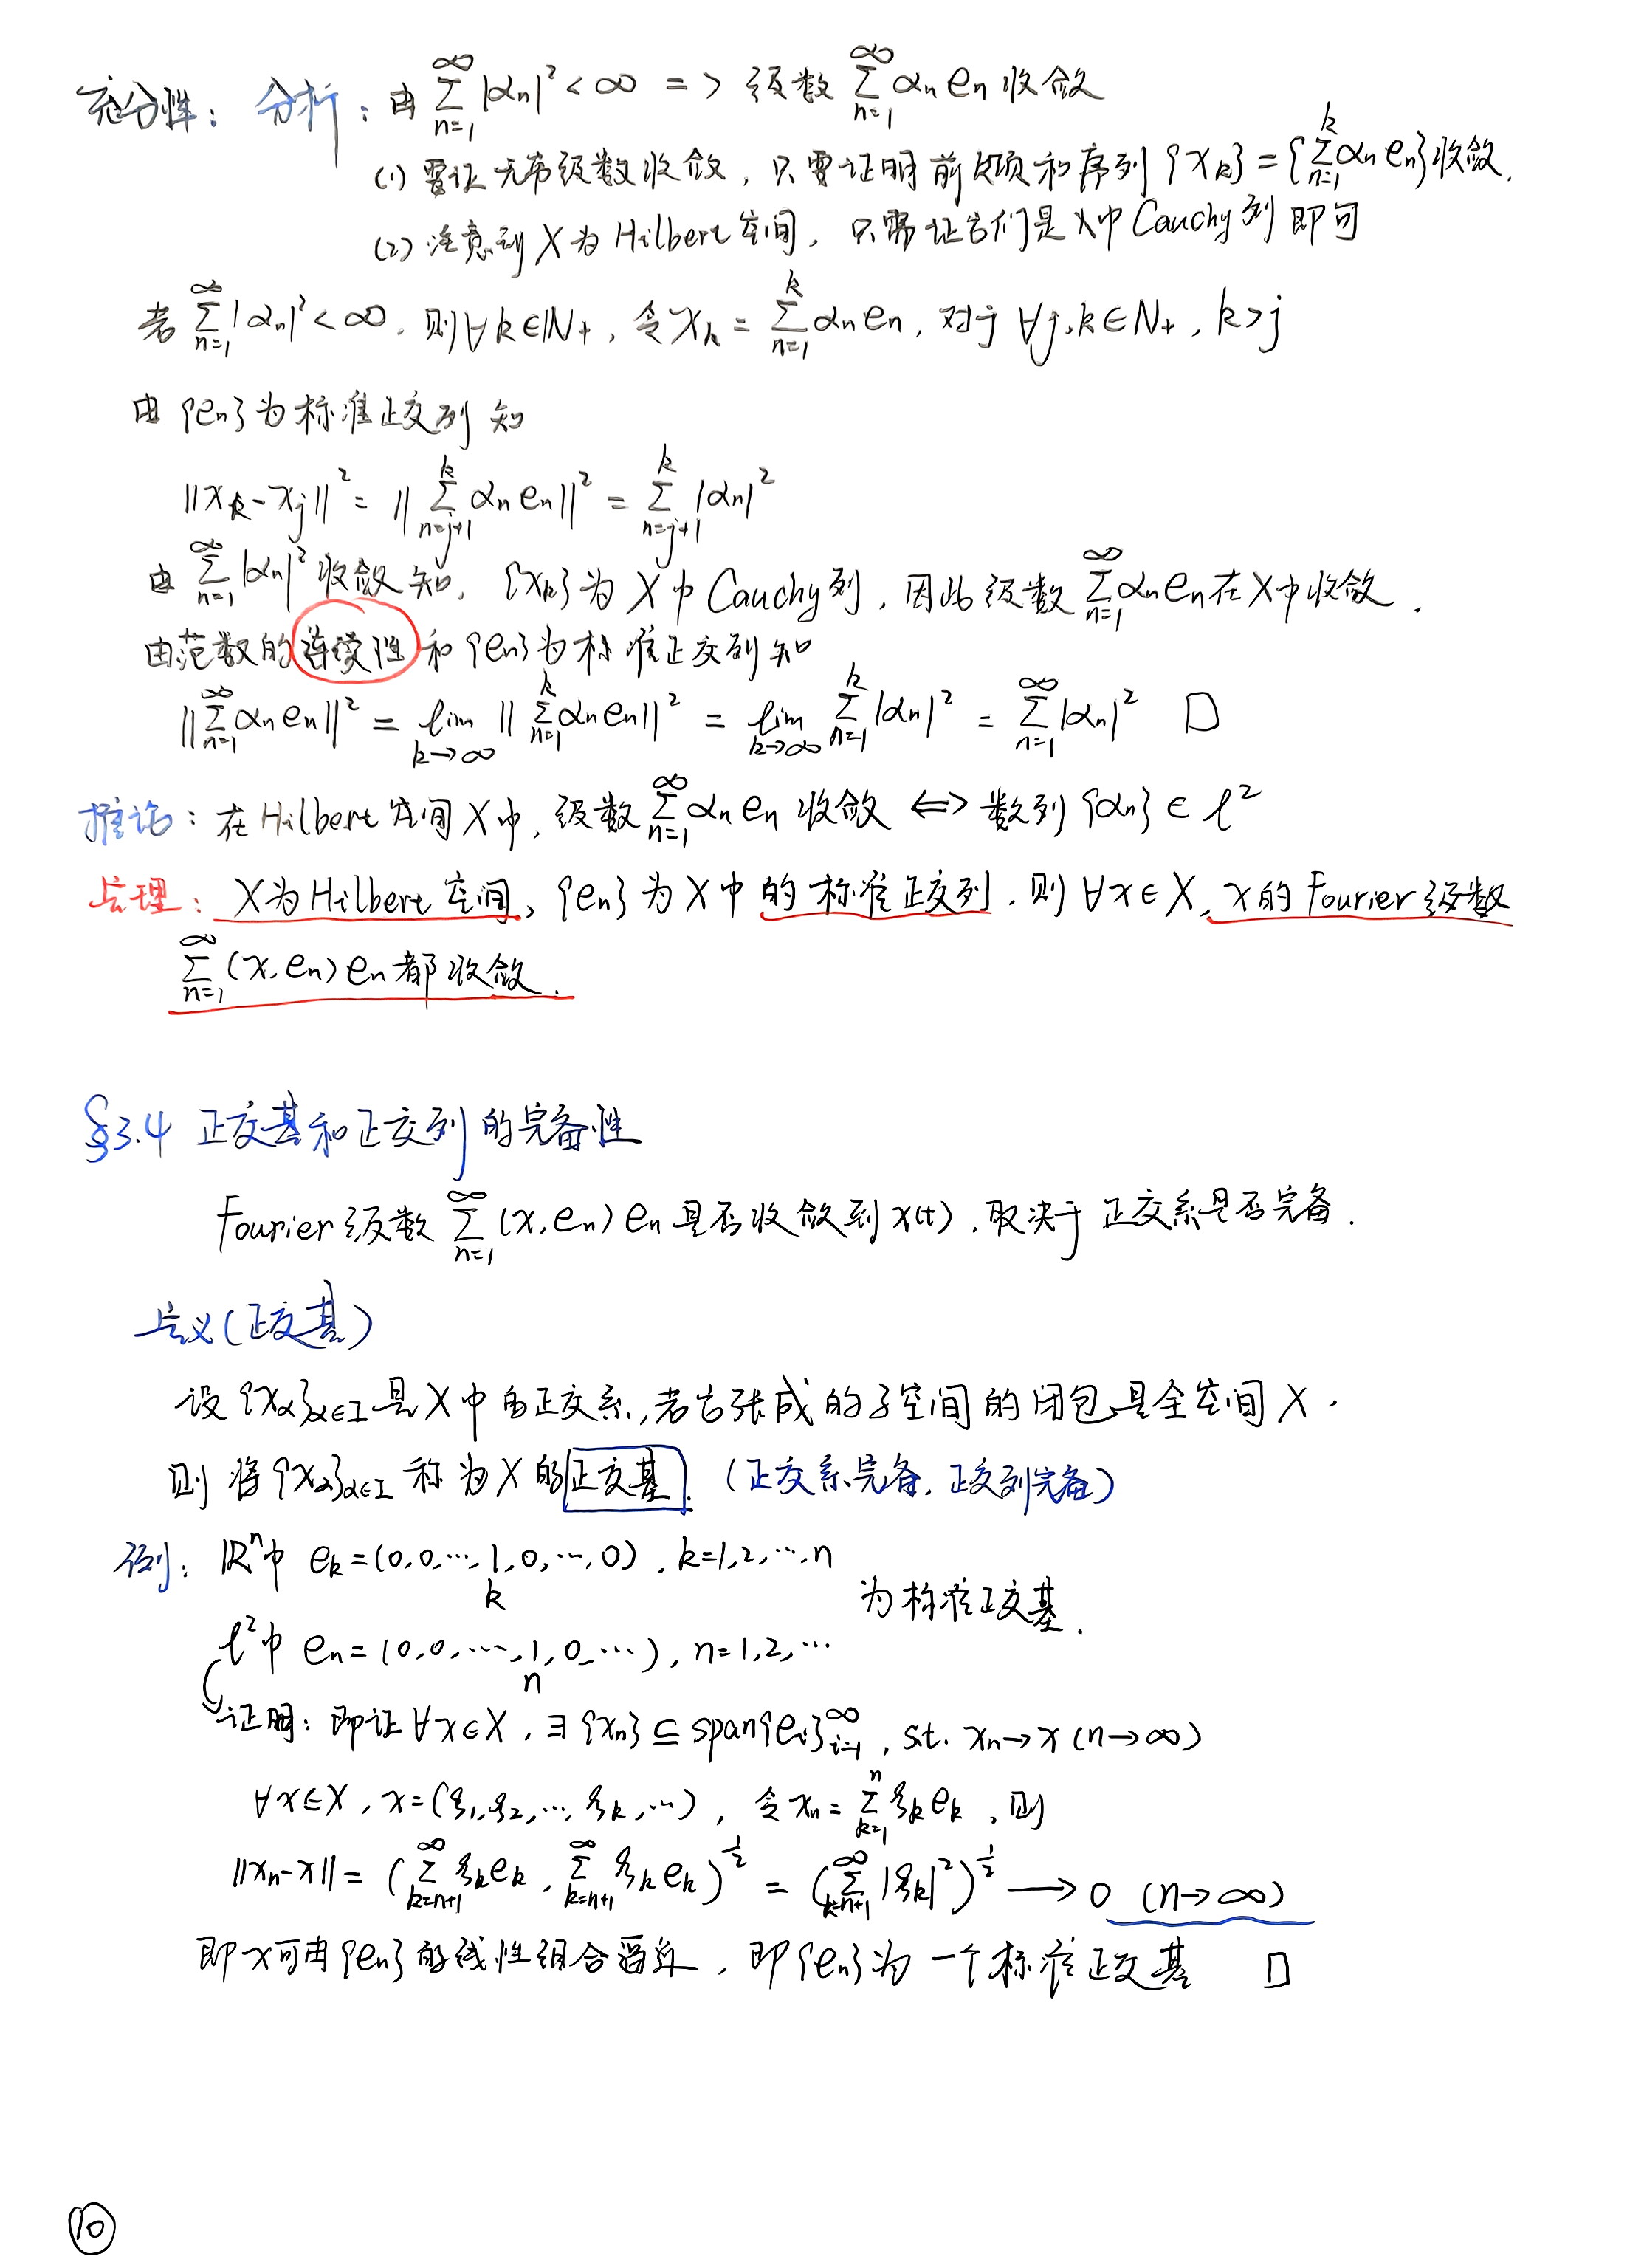 充分性: 分析: 由 $\sum_{n=1}^{\infty}|\alpha_n|^2<\infty$ => 级数 $\sum_{n=1}^{\infty}\alpha_n e_n$ 收敛
(1) 要证无穷级数收敛, 只要证明前k项和序列 $\{x_k\}=\{\sum_{n=1}^{k}\alpha_n e_n\}$ 收敛.
(2) 注意到 X 为 Hilbert 空间, 只需证它们是 X 中 Cauchy 列即可
若 $\sum_{n=1}^{\infty}|\alpha_n|^2<\infty$, 则 $\forall k\in N_+$, 令 $x_k=\sum_{n=1}^{k}\alpha_n e_n$, 对于 $\forall j,k\in N_+$, $k>j$
由 $\{e_n\}$ 为标准正交列知
$\|x_k-x_j\|^2=\|\sum_{n=j+1}^{k}\alpha_n e_n\|^2=\sum_{n=j+1}^{k}|\alpha_n|^2$
由 $\sum_{n=1}^{\infty}|\alpha_n|^2$ 收敛知, $\{x_k\}$ 为 X 中 Cauchy 列, 因此级数 $\sum_{n=1}^{\infty}\alpha_n e_n$ 在 X 中收敛.
由范数的连续性和 $\{e_n\}$ 为标准正交列知
$\|\sum_{n=1}^{\infty}\alpha_n e_n\|^2=\lim_{k\to\infty}\|\sum_{n=1}^{k}\alpha_n e_n\|^2=\lim_{k\to\infty}\sum_{n=1}^{k}|\alpha_n|^2=\sum_{n=1}^{\infty}|\alpha_n|^2$ □
推论: 在 Hilbert 空间 X 中, 级数 $\sum_{n=1}^{\infty}\alpha_n e_n$ 收敛 $\Leftrightarrow$ 数列 $\{\alpha_n\}\in l^2$
定理: X 为 Hilbert 空间, $\{e_n\}$ 为 X 中的标准正交列, 则 $\forall x\in X$, x 的 Fourier 级数
$\sum_{n=1}^{\infty}(x,e_n)e_n$ 都收敛.
§3.4 正交基和正交列的完备性
Fourier 级数 $\sum_{n=1}^{\infty}(x,e_n)e_n$ 是否收敛到 x(t), 取决于正交系是否完备.
定义(正交基)
设 $\{x_\alpha\}_{\alpha\in I}$ 是 X 中的正交系, 若它张成的子空间的闭包是全空间 X,
则将 $\{x_\alpha\}_{\alpha\in I}$ 称为 X 的正交基. (正交系完备, 正交列完备)
例: $R^n$ 中 $e_k=(0,0,\cdots,\underset{k}{1},0,\cdots,0)$, $k=1,2,\cdots,n$
为标准正交基.
$l^2$ 中 $e_n=(0,0,\cdots,\underset{n}{1},0,\cdots)$, $n=1,2,\cdots$
证明: 即证 $\forall x\in X$, $\exists\{x_n\}\subseteq span\{e_i\}_{i=1}^{\infty}$, s.t. $x_n\to x\ (n\to\infty)$
$\forall x\in X$, $x=(\xi_1,\xi_2,\cdots,\xi_k,\cdots)$, 令 $x_n=\sum_{k=1}^{n}\xi_k e_k$, 则
$\|x_n-x\|=(\sum_{k=n+1}^{\infty}\xi_k e_k,\sum_{k=n+1}^{\infty}\xi_k e_k)^{\frac{1}{2}}=(\sum_{k=n+1}^{\infty}|\xi_k|^2)^{\frac{1}{2}}\longrightarrow 0\ (n\to\infty)$
即 x 可由 $\{e_n\}$ 的线性组合逼近, 即 $\{e_n\}$ 为一个标准正交基 □
⑩